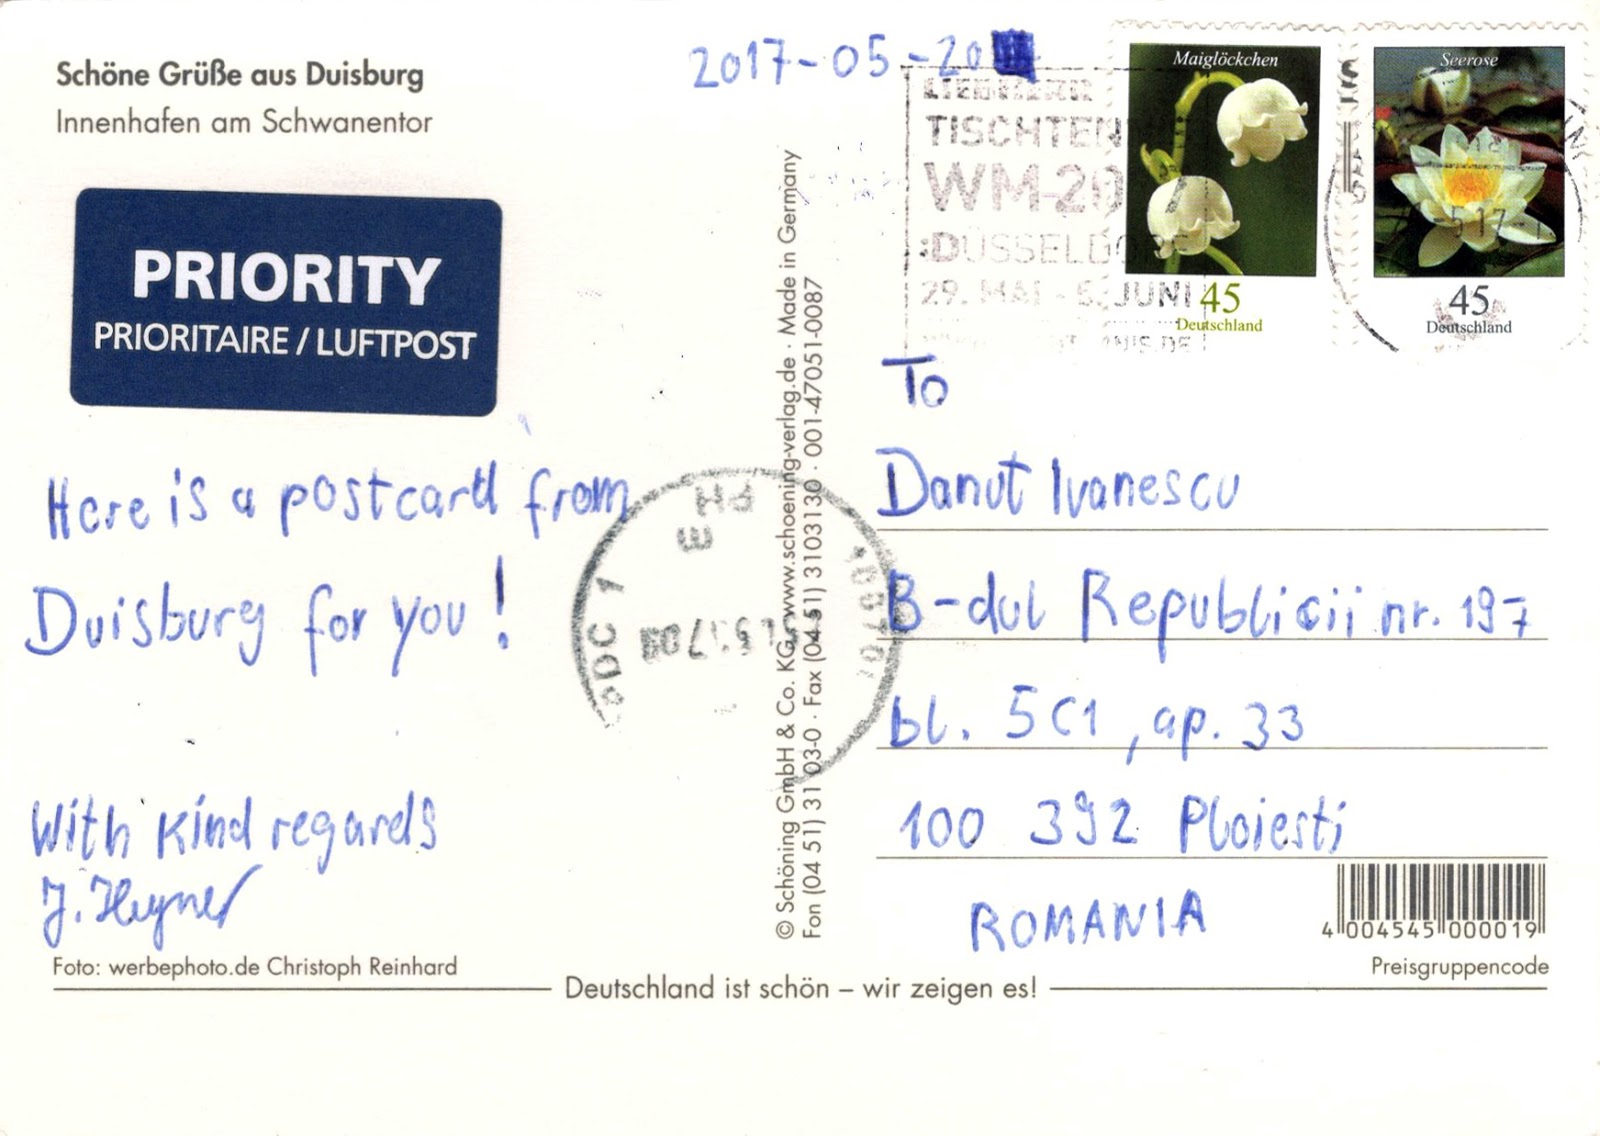 Schöne Grüße aus Duisburg
Innenhafen am Schwanentor
PRIORITY
PRIORITAIRE / LUFTPOST
Here is a postcard from
Duisburg for you!
With kind regards
J. Heyner
Foto: werbephoto.de Christoph Reinhard
Deutschland ist schön – wir zeigen es!
© Schöning GmbH & Co. KG · www.schoening-verlag.de · Made in Germany
Fon (04 51) 31 03-0 · Fax (04 51) 3103130 · 001-47051-0087
2017-05-20
LIEBHERR
TISCHTEN
WM-20
DÜSSELDORF
29. MAI - 5. JUNI
Maiglöckchen
45
Deutschland
Seerose
45
Deutschland
To
Danut Ivanescu
B-dul Republicii nr. 197
bl. 5C1, ap. 33
100 392 Ploiesti
ROMANIA
4 004545 000019
Preisgruppencode